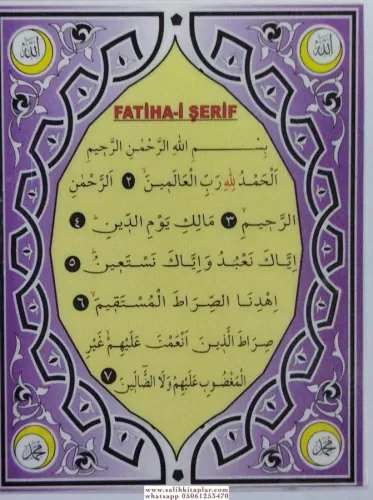 الله
الله
FATİHA-İ ŞERİF
بِسْمِ اللهِ الرَّحْمٰنِ الرَّحِيمِ
اَلْحَمْدُ لِلّٰهِ رَبِّ الْعَالَمِينَ ٢ اَلرَّحْمٰنِ
الرَّحِيمِ ٣ مَالِكِ يَوْمِ الدِّينِ ٤
اِيَّاكَ نَعْبُدُ وَاِيَّاكَ نَسْتَعِينُ ٥
اِهْدِنَا الصِّرَاطَ الْمُسْتَقِيمَ ٦
صِرَاطَ الَّذِينَ اَنْعَمْتَ عَلَيْهِمْ غَيْرِ
الْمَغْضُوبِ عَلَيْهِمْ وَلَا الضَّالِّينَ ٧
محمد
محمد
www.salihkitaplar.com
whatsapp 05061253470